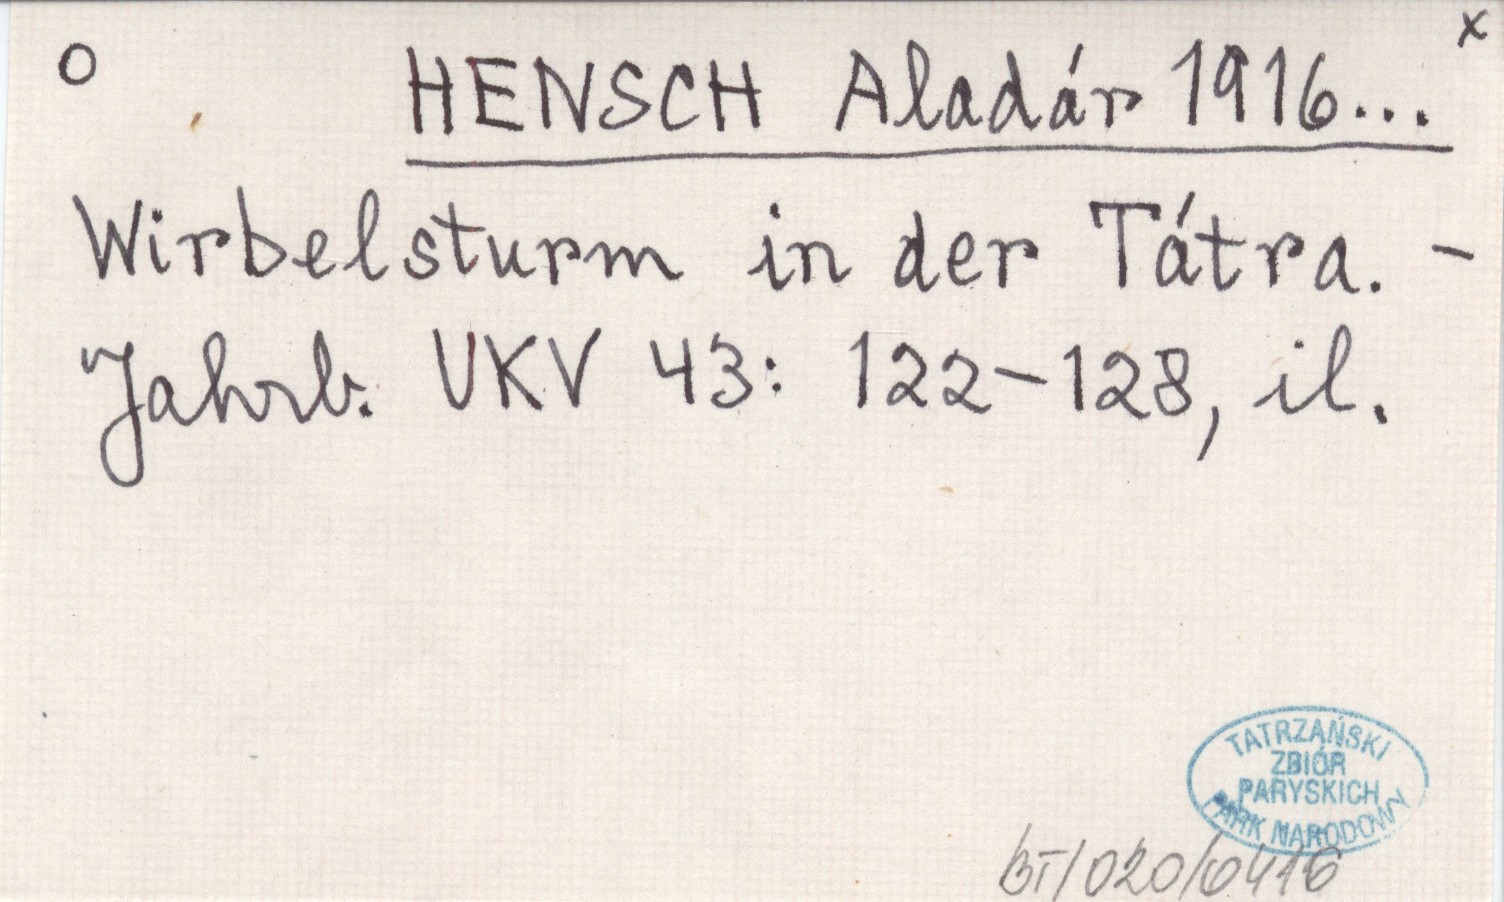 O
x
HENSCH Aladár 1916...
Wirbelsturm in der Tátra. -
Jahrb. UKV 43: 122-128, il.
TATRZAŃSKI
ZBIÓR
PARYSKICH
PARK NARODOWY
BT/020/0416